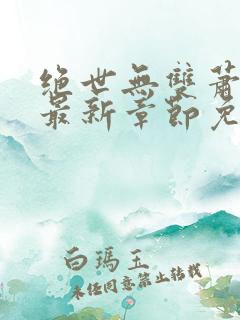 絕世無雙蕭
最新章節免
白瑪玉
未經同意禁止轉載